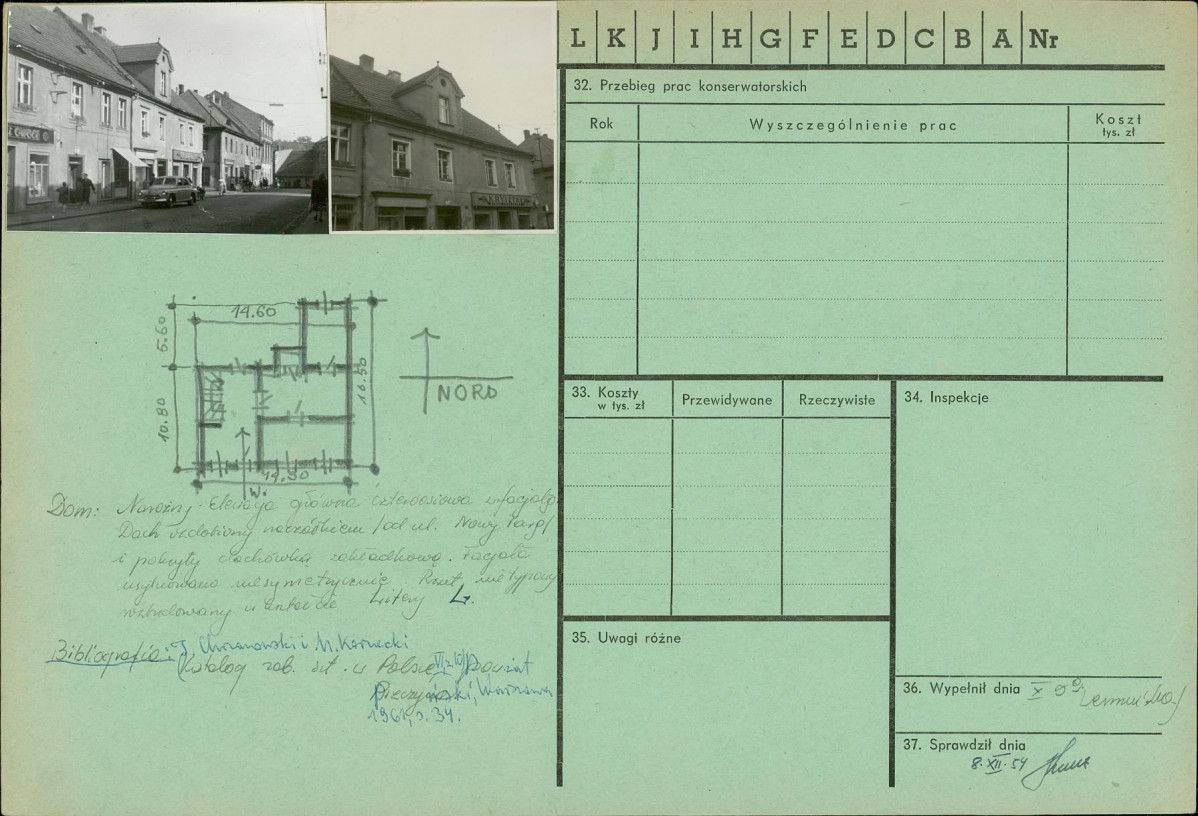 L K J I H G F E D C B A Nr
32. Przebieg prac konserwatorskich
Rok
Wyszczególnienie prac
Koszt
tys. zł
OWOCE
14.60
5.60
10.80
16.50
14.50
W.
NORD
Dom: Narożny. Elewacja główna czteroosiowa z facjatą.
Dach ozdobiony naczółkiem /od ul. Nowy Targ/
i pokryty dachówką zakładkową. Facjata
usytuowana niesymetrycznie. Rzut nietypowy
rozbudowany w kształcie litery L.
Bibliografia: J. Chrzanowski i M. Kornecki
Katalog zab. szt. w Polsce, powiat
Warszawa
1961, s. 34.
33. Koszty
w tys. zł
Przewidywane
Rzeczywiste
34. Inspekcje
35. Uwagi różne
36. Wypełnił dnia X 59
37. Sprawdził dnia
8. XII. 59